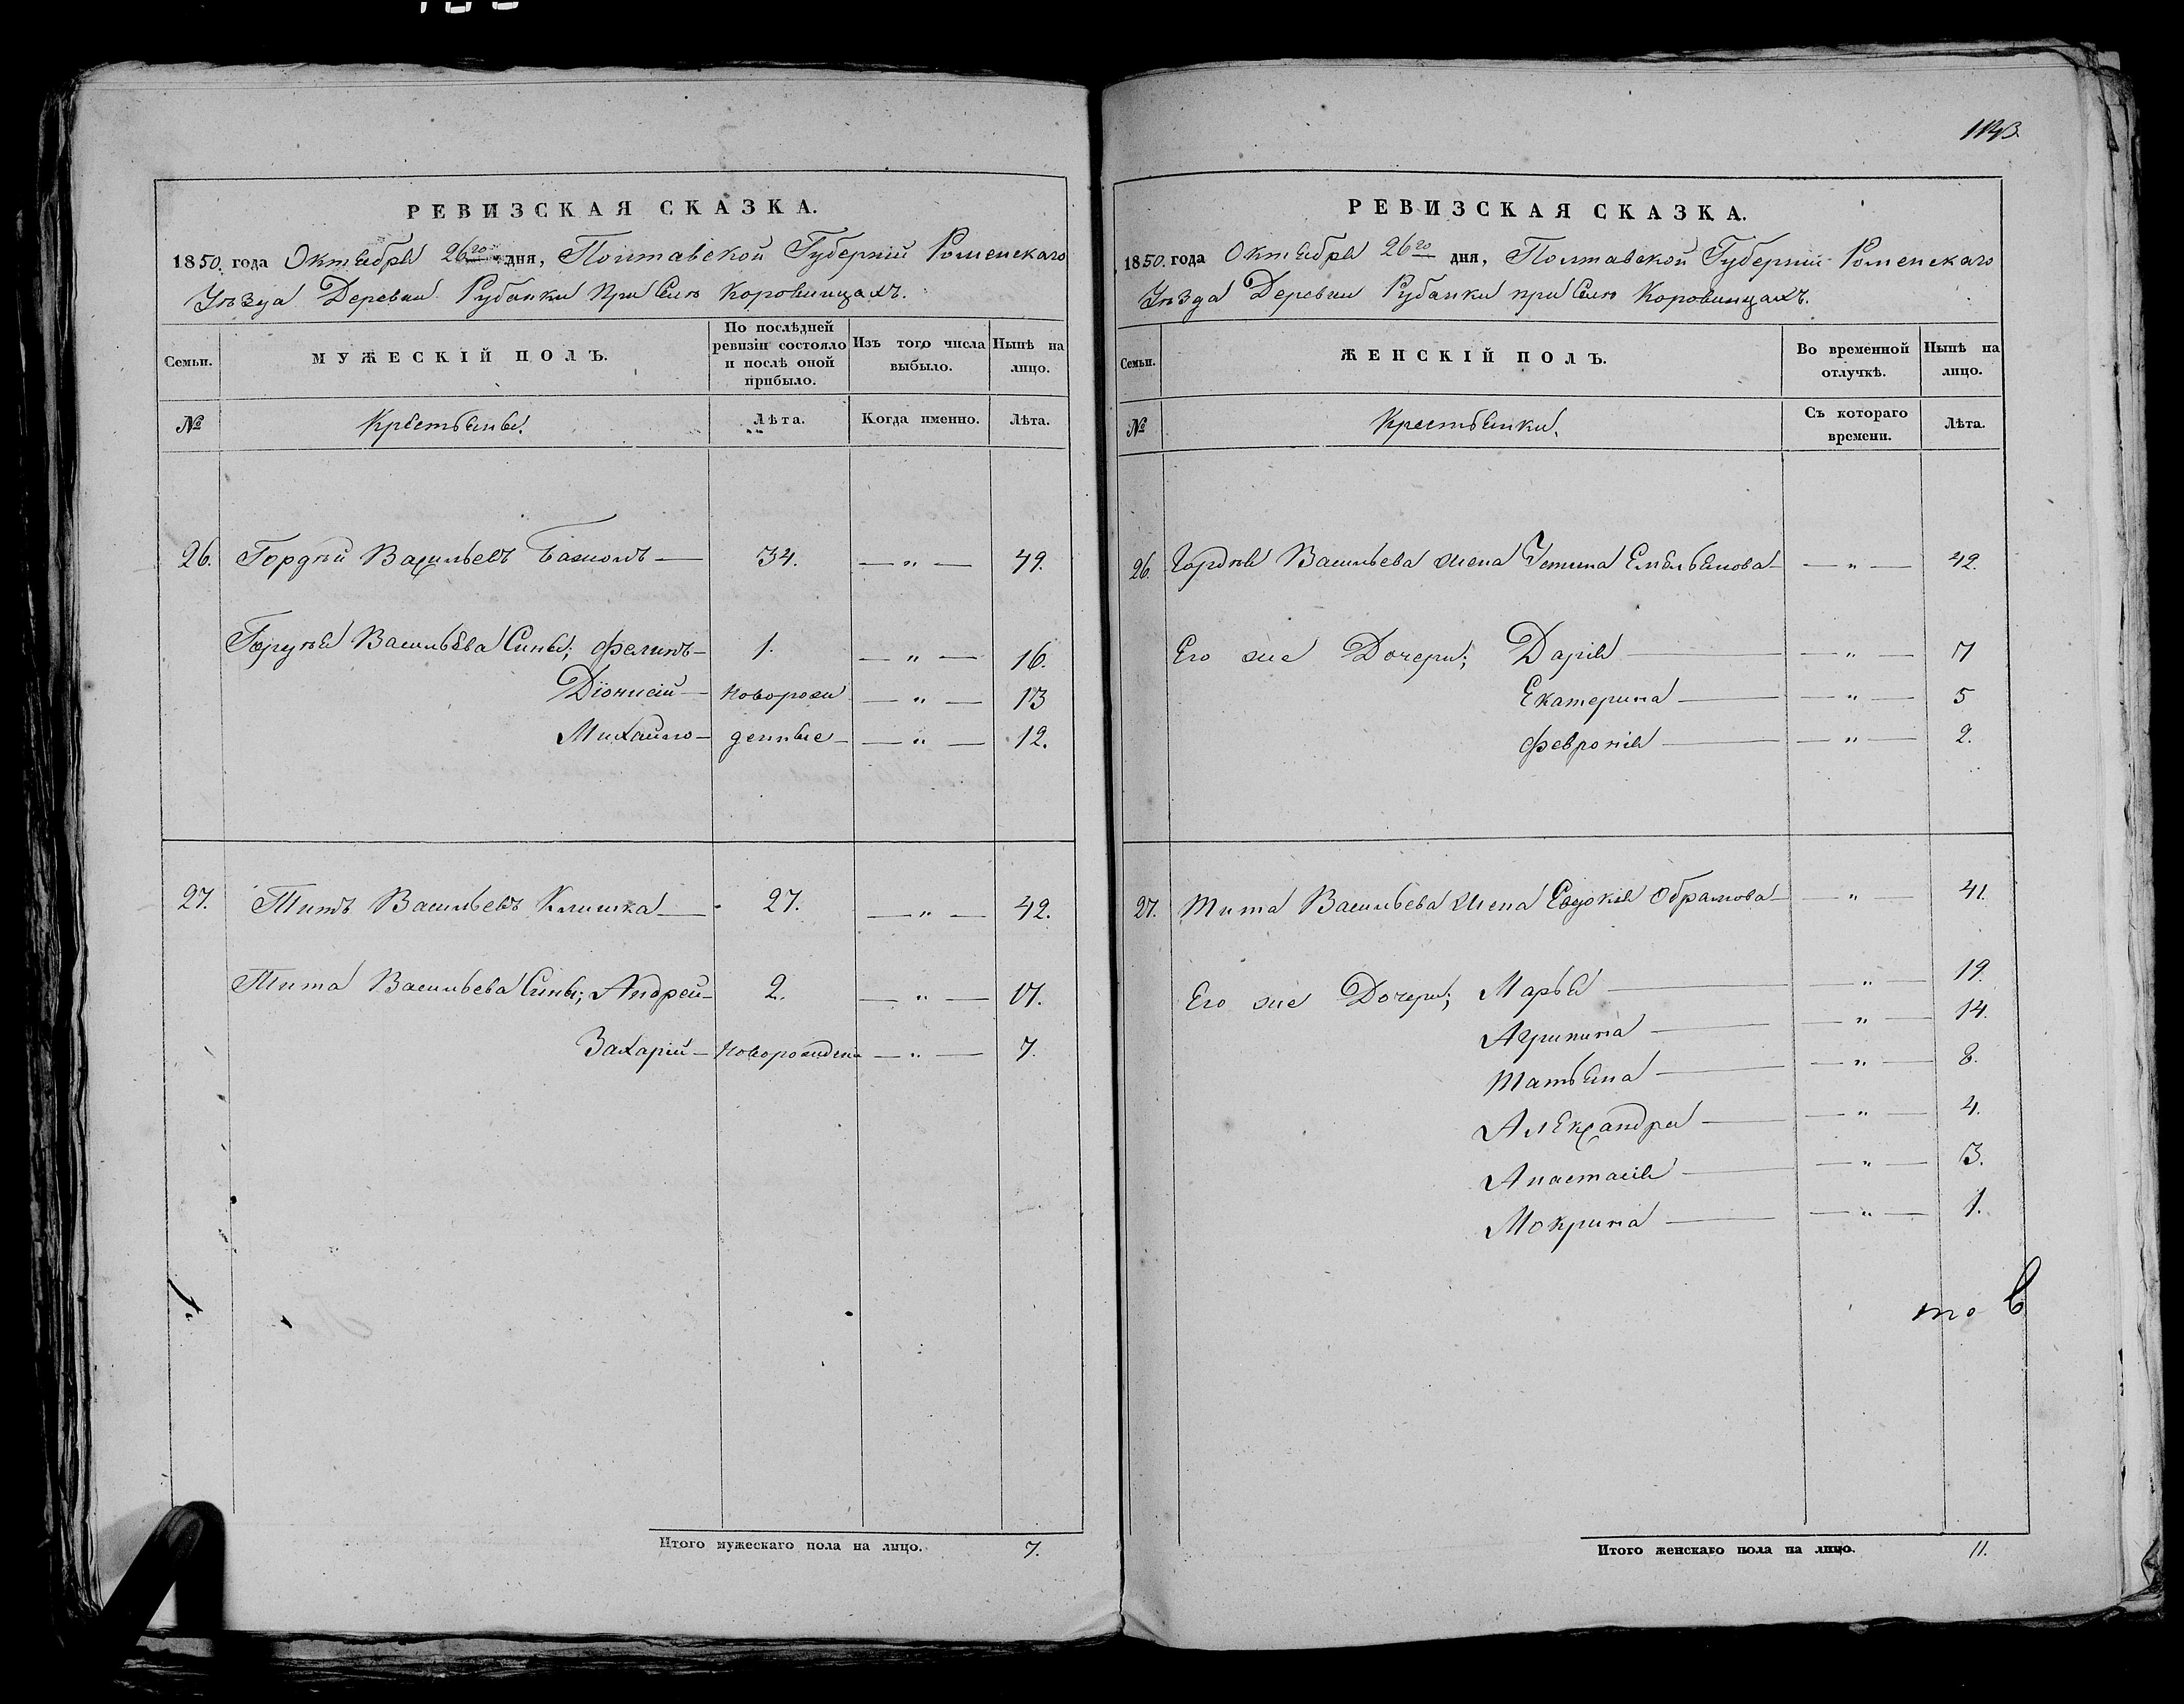 1143.
РЕВИЗСКАЯ СКАЗКА.
1850. года Октября 26го дня, Полтавской Губернїи Роменскаго
Уѣзда Деревни Рубанки при Селѣ Коровинцахъ.
Семьи.
МУЖЕСКІЙ ПОЛЪ.
По послѣдней ревизіи состояло и послѣ оной прибыло.
Изъ того числа выбыло.
Нынѣ на лицо.
№
Крестьяны.
Лѣта.
Когда именно.
Лѣта.
26. Гордѣй Васильевъ — 34. — „ — 49.
Гордѣя Васильева Сины; Филипъ — 1. — „ — 16.
Дїонисій — новорож — „ — 13
Михайло — денные — — „ — 12.
27. Титъ Васильевъ Климка — 27. — „ — 42.
Тита Васильева Сины; Андрей — 2. — „ — 17.
Захарій — Новорожден — „ — 7.
Итого мужескаго пола на лицо. 7.
РЕВИЗСКАЯ СКАЗКА.
1850. года Октября 26го дня, Полтавской Губернїи Роменскаго
Уѣзда Деревни Рубанки при Селѣ Коровинцахъ.
Семьи.
ЖЕНСКІЙ ПОЛЪ.
Во временной отлучкѣ.
Нынѣ на лицо.
№
Крестьянки.
Съ котораго времени.
Лѣта.
26. Гордѣя Васильева жена Устина Емельянова — — „ — 42.
Его же Дочери; Дарія — — „ — 7
Екатерина — — „ — 5
Февронія — — „ — 2.
27. Тита Васильева жена Евдокія Обрамова — — „ — 41.
Его же Дочери; Марья — — „ — 19.
Агрипина — — „ — 14.
Татьяна — — „ — 8.
Александра — — „ — 4.
Анастасія — — „ — 3.
Мокрина — — „ — 1.
Итого женскаго пола на лицо. 11.